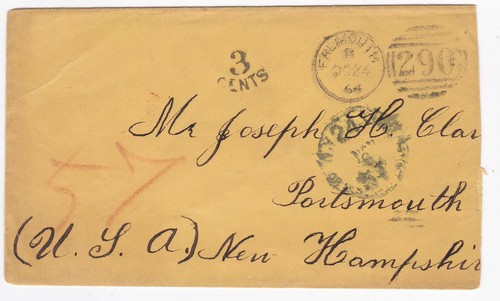 3
CENTS
FALMOUTH
B
OC 24
64
290
Mr Joseph H. Clar
N.Y.
24
NOV
57
Portsmouth
(U. S. A.) New Hampshir